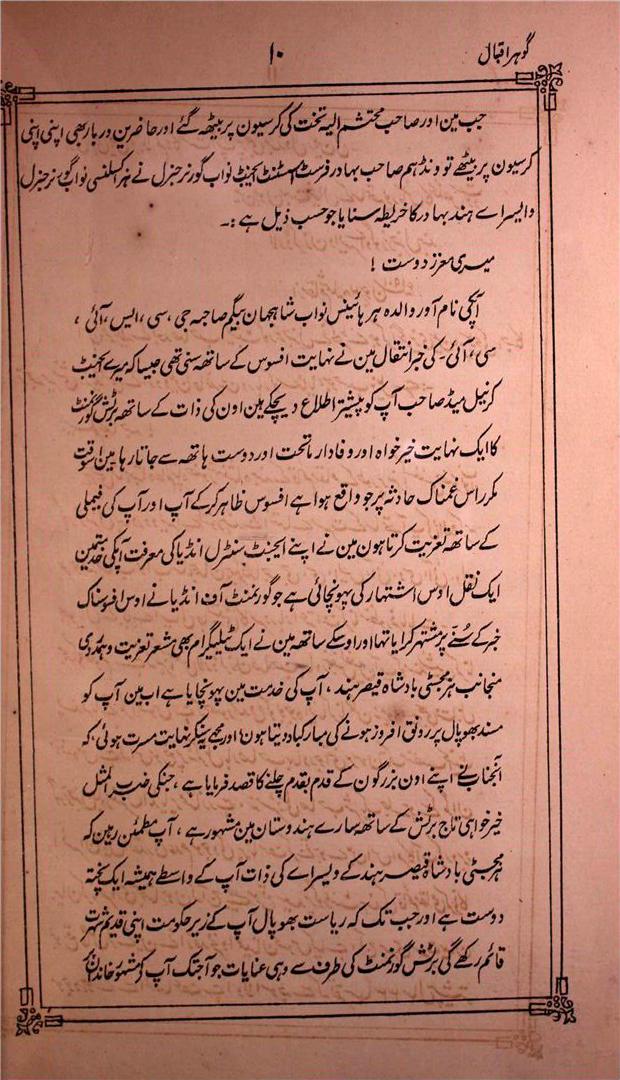 گوہر اقبال
۱۰
جب مین اور صاحب محتشم الیہ تخت کی کرسیون پر بیٹھ گئے اور حاضرین دربار بھی اپنی اپنی
کرسیون پر بیٹھے تو ونڈہم صاحب بہادر فرسٹ اسسٹنٹ ایجنٹ نواب گورنر جنرل نے ہز اکسلنسی نواب گورنر جنرل
وایسراے ہند بہادر کا خریطہ سنایا جو حسب ذیل ہے :۔
میری معزز دوست !
آپکی نام آور والدہ ہر ہائینس نواب شاہجہان بیگم صاحبہ جی ، سی ، ایس ، آئی ،
سی ، آئی ۔ کی خبر انتقال مین نے نہایت افسوس کے ساتھ سنی تھی جیسا کہ میرے ایجنٹ
کرنیل میڈ صاحب آپ کو پیشتر اطلاع دیچکے ہین اون کی ذات کے ساتھ برٹش گورنمنٹ
کا ایک نہایت خیر خواہ اور وفادار ماتحت اور دوست ہاتھ سے جاتا رہا مین اسوقت
مکرر اس غمناک حادثہ پر جو واقع ہوا ہے افسوس ظاہر کرکے آپ اور آپ کی فیملی
کے ساتھ تعزیت کرتا ہون مین نے اپنے ایجنٹ سنٹرل انڈیا کی معرفت آپکی خدمتمین
ایک نقل اوس اشتہار کی پہونچائی ہے جو گورنمنٹ آف انڈیا نے اوس افسوسناک
خبر کے سُننے پر مشتہر کرایا تھا اور اوسکے ساتھ مین نے ایک ٹیلیگرام بھی مشعر تعزیت و ہمدردی
منجانب ہز مجسٹی بادشاہ قیصر ہند ، آپ کی خدمت مین پہونچایا ہے اب مین آپ کو
مسند بھوپال پر رونق افروز ہونے کی مبارکباد دیتا ہون اور مجھے یہ سنکر نہایت مسرت ہوئی ، کہ
آنجناب نے اپنے اون بزرگون کے قدم بقدم چلنے کا قصد فرمایا ہے ، جنکی ضرب المثل
خیر خواہی تاج برٹش کے ساتھ سارے ہندوستان مین مشہور ہے ، آپ مطمئن رہین کہ
ہز مجسٹی بادشاہ قیصر ہند کے ویسراے کی ذات آپ کے واسطے ہمیشہ ایک پختہ
دوست ہے اور جب تک کہ ریاست بھوپال آپ کے زیر حکومت اپنی قدیم شہرت
قائم رکھے گی برٹش گورنمنٹ کی طرف سے وہی عنایات جو آجتک آپ کے مشہور خاندان